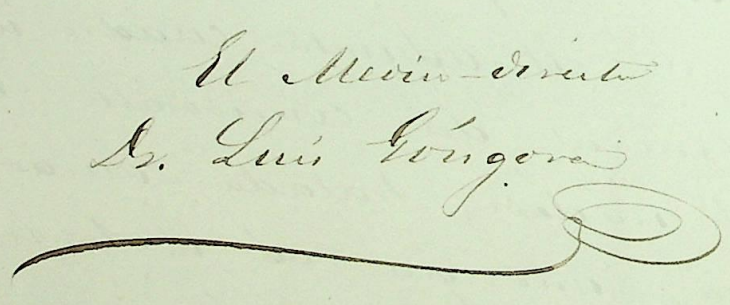 El Medico-director
Dr. Luis Góngora